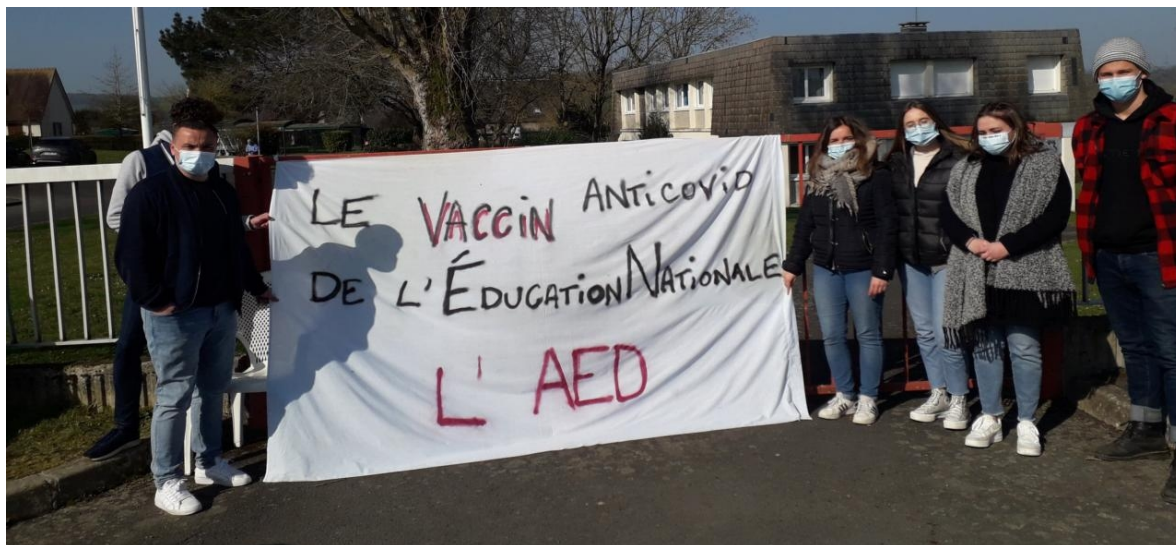 LE VACCIN ANTICOVID
DE L'ÉDUCATION NATIONALE
L'AED